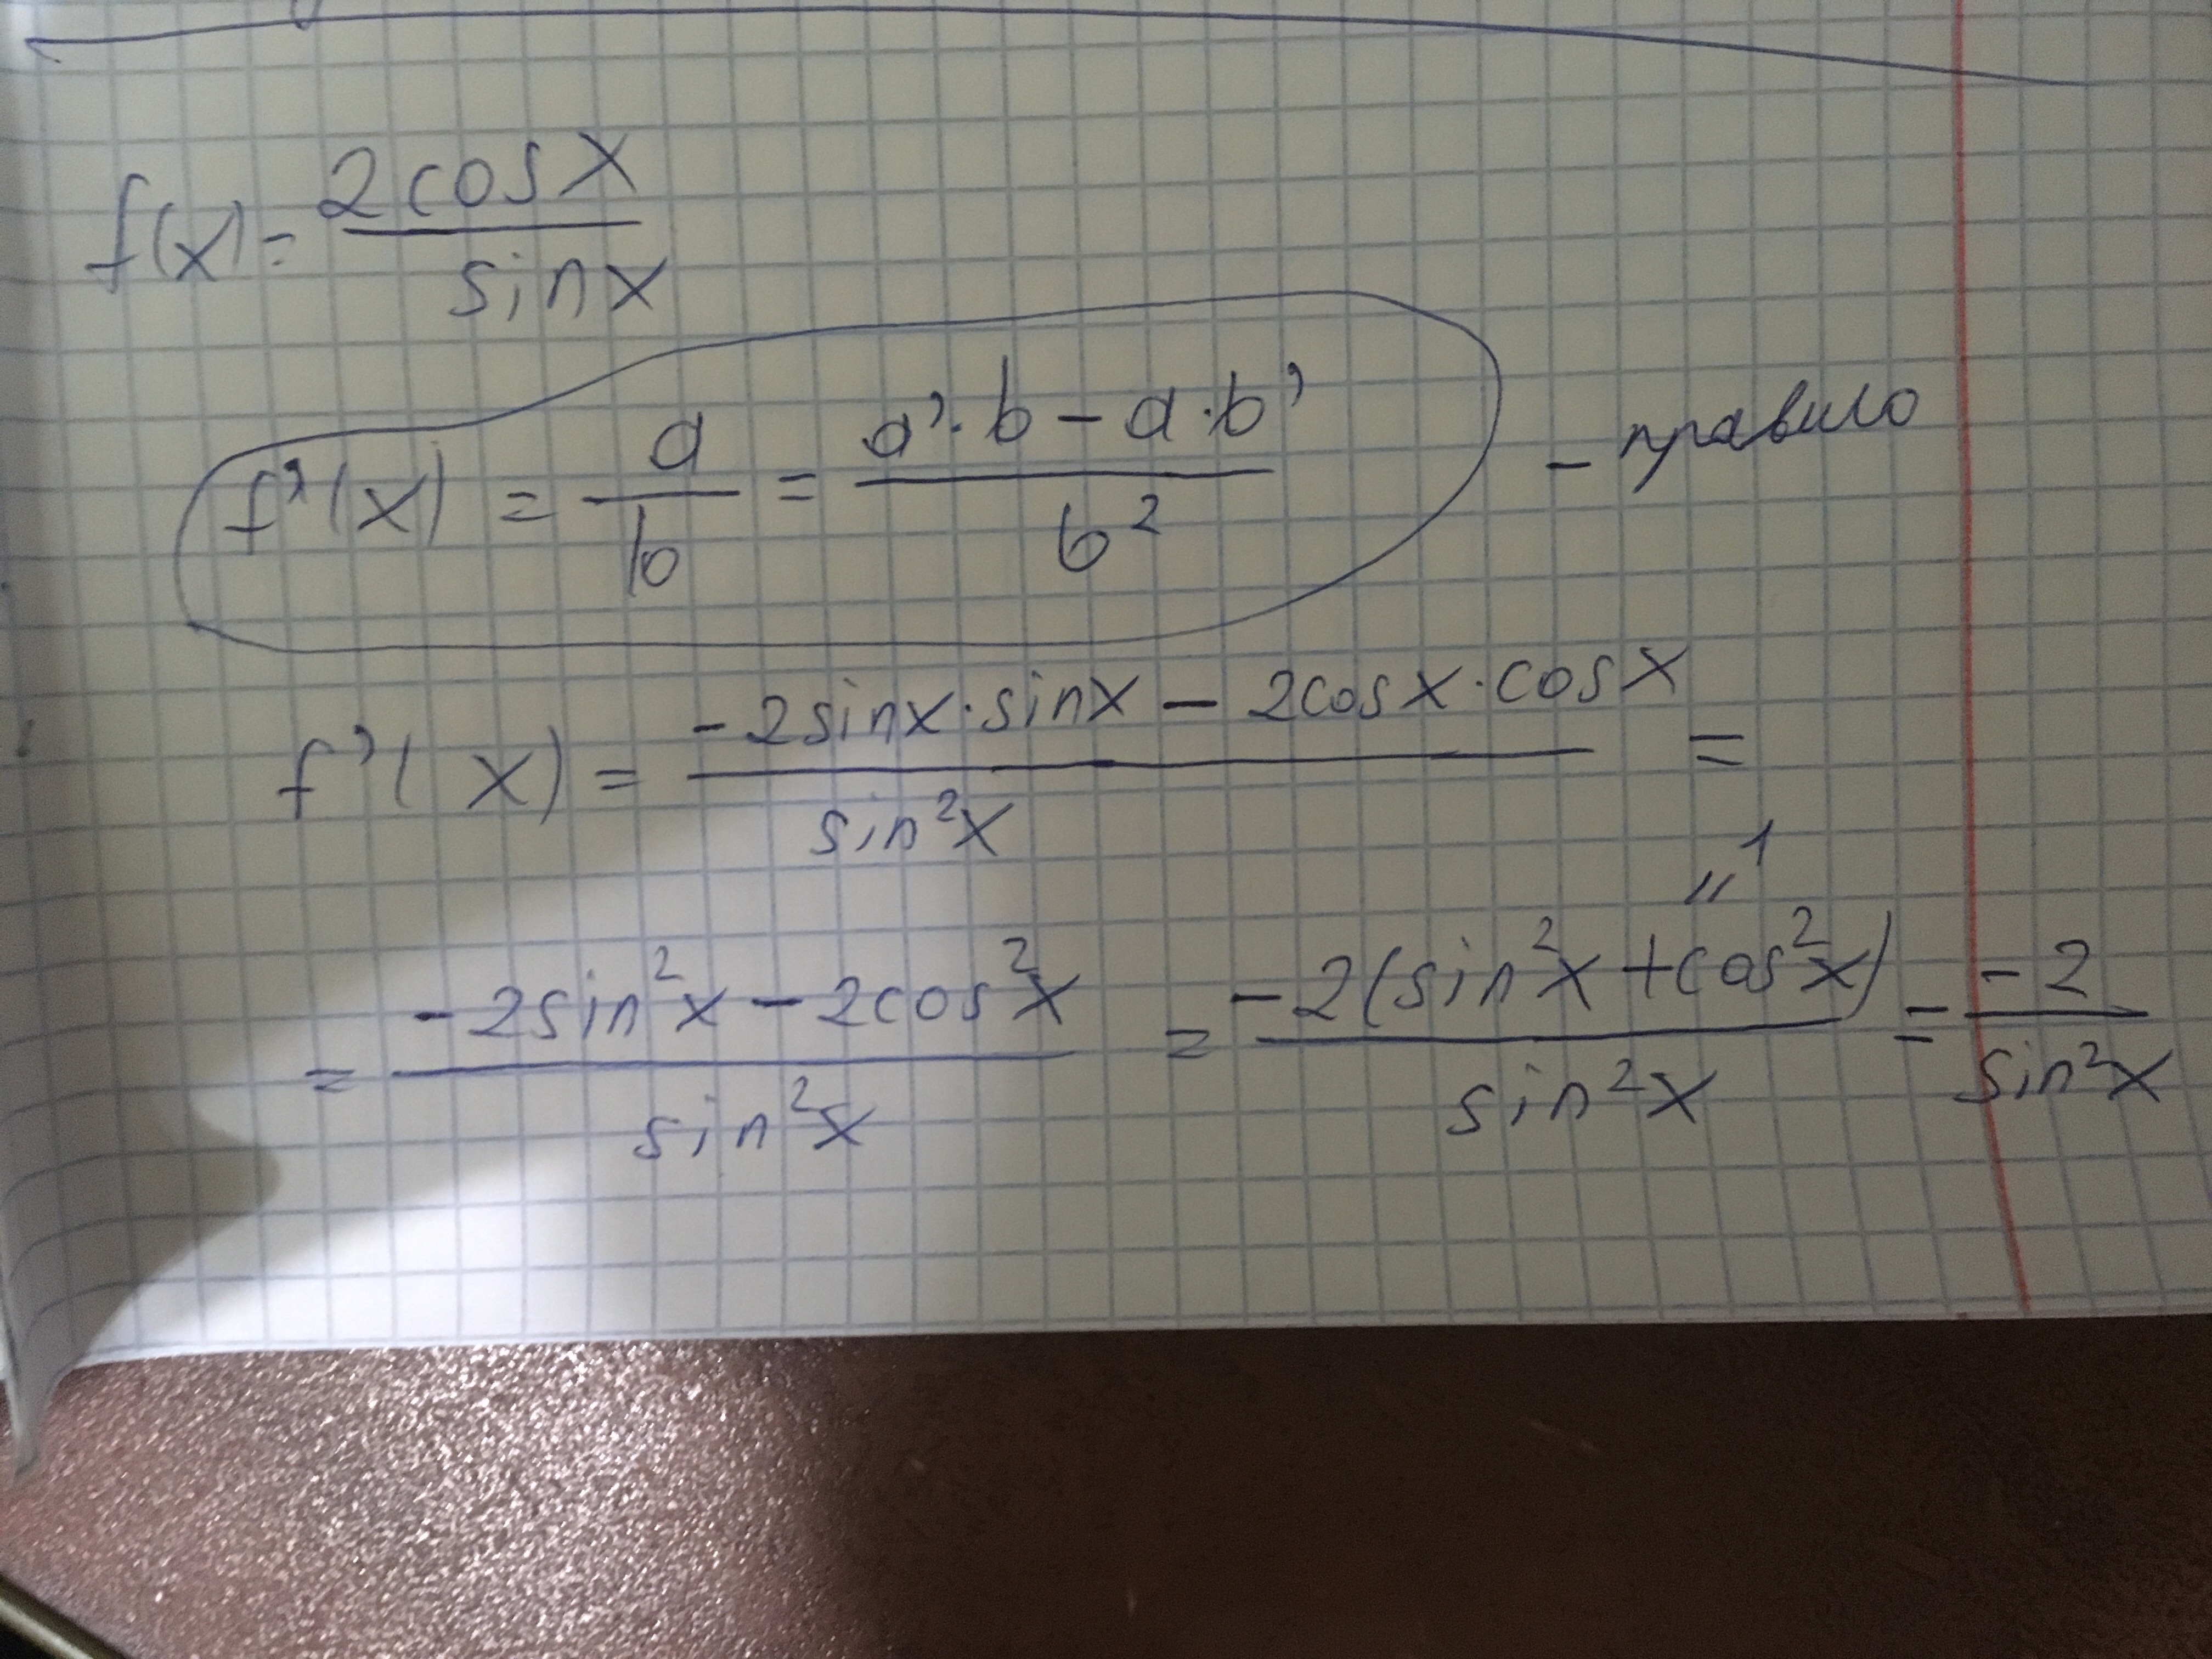 f(x) = 2cosx / sinx
f'(x) = a / b = a'·b – a·b' / b² – правило
f'(x) = -2sinx·sinx – 2cosx·cosx / sin²x =
= -2sin²x – 2cos²x / sin²x = -2(sin²x + cos²x) / sin²x = -2 / sin²x
" 1